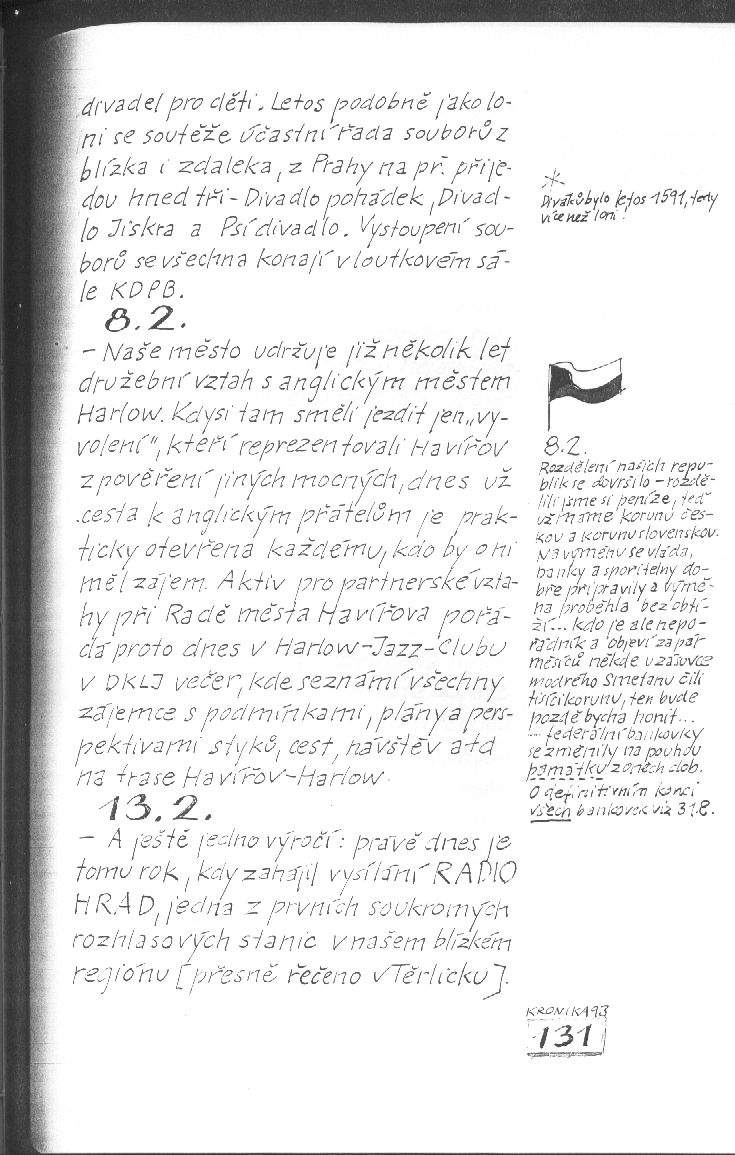 divadel pro děti. Letos podobně jako lo-
ni se soutěže účastní řada souborů z
blízka i zdaleka, z Prahy na př. přije-
dou hned tři - Divadlo pohádek, Divad-
lo Jiskra a Psí divadlo. Vystoupení sou-
borů se všechna konají v loutkovém sá-
le KDPB.
8.2.
- Naše město udržuje již několik let
družební vztah s anglickým městem
Harlow. Kdysi tam směli jezdit jen „vy-
volení", kteří reprezentovali Havířov
z pověření jiných mocných, dnes už
cesta k anglickým přátelům je prak-
ticky otevřena každému, kdo by o ni
měl zájem. Aktiv pro partnerské vzta-
hy při Radě města Havířova pořá-
dá proto dnes v Harlow-Jazz-Clubu
v DKLJ večer, kde seznámí všechny
zájemce s podmínkami, plány a pers-
pektivami styků, cest, návštěv atd
na trase Havířov-Harlow.
13.2.
- A ještě jedno výročí: právě dnes je
tomu rok, kdy zahájil vysílání RADIO
HRAD, jedna z prvních soukromých
rozhlasových stanic v našem blízkém
regiónu [přesně řečeno v Těrlicku].
*
Diváků bylo letos 1591, tedy
více než loni.
8.2.
Rozdělení našich repu-
blik se dovršilo - rozdě-
lili jsme si peníze, teď
už máme korunu čes-
kou a korunu slovenskou.
Na výměnu se vláda,
banky a spořitelny do-
bře připravily a výmě-
na proběhla bez obtí-
ží... kdo je ale nepo-
řádník a objeví za pár
měsíců někde v zásuvce
modrého Smetanu čili
tisícikorunu, ten bude
pozdě bycha honit...
- federální bankovky
se změnily na pouhou
památku z oněch dob.
O definitivním konci
všech bankovek viz 31.8.
KRONIKA 93
131